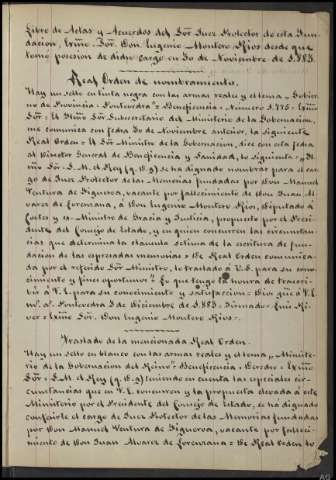 Libro de Actas y Acuerdos del Sõr Juez Protector de esta Fun-
dacion, Exmo. Sõr. Don Eugenio Montero Rios desde que
tomó posesion de dicho cargo en 30 de Noviembre de 1.883.
Real Orden de nombramiento.
Hay un sello en tinta negra con las armas reales y el lema „ Gobier-
no de Provincia = Pontevedra = Beneficencia = Numero 5.775 = Exmo
Sõr: El Iltmo Sõr Subsecretario del Ministerio de la Gobernacion,
me comunica con fecha 30 de Noviembre anterior, la siguiente
Real Orden = El Sõr Ministro de la Gobernacion, dice con esta fecha
al Director General de Beneficencia y Sanidad, lo siguiente =
Sõr = S. M. el Rey (q. D. g) se ha dignado nombrar para el car-
go de Juez Protector de las Memorias fundadas por Don Manuel
Ventura de Figueroa, vacante por fallecimiento de Don Juan Al-
varez de Lorenzana, á Don Eugenio Montero Rios, Diputado á
Cortes y ex-Ministro de Gracia y Justicia, propuesto por el Presi-
dente del Consejo de Estado, y en quien concurren las circunstan-
cias que determina la cláusula setima de la escritura de fun-
dacion de las expresadas memorias = De Real Orden comunica-
da por el referido Sõr Ministro, lo traslado á V. S. para su cono-
cimiento y fines oportunos = Lo que tengo la honra de trascri-
bir á V. E. para su conocimiento y satisfaccion = Dios gũe á V. E.
mõs. aõs. Pontevedra 3 de Diciembre de 1.883 = Firmado = Luis Ri-
ver = Exmo Sõr. Don Eugenio Montero Rios =
Traslado de la mencionada Real Orden.
Hay un sello en blanco con las armas reales y el lema „ Ministe-
rio de la Gobernacion del Reino = Beneficencia = = Exmo
Sõr: S. M. el Rey (q. D. g) teniendo en cuenta las especiales cir-
cunstancias que en V. E. concurren y la propuesta elevada á este
Ministerio por el Presidente del Consejo de Estado, se ha dignado
conferirle el cargo de Juez Protector de las Memorias fundadas
por Don Manuel Ventura de Figueroa, vacante por falleci-
miento de Don Juan Alvarez de Lorenzana = De Real Orden lo